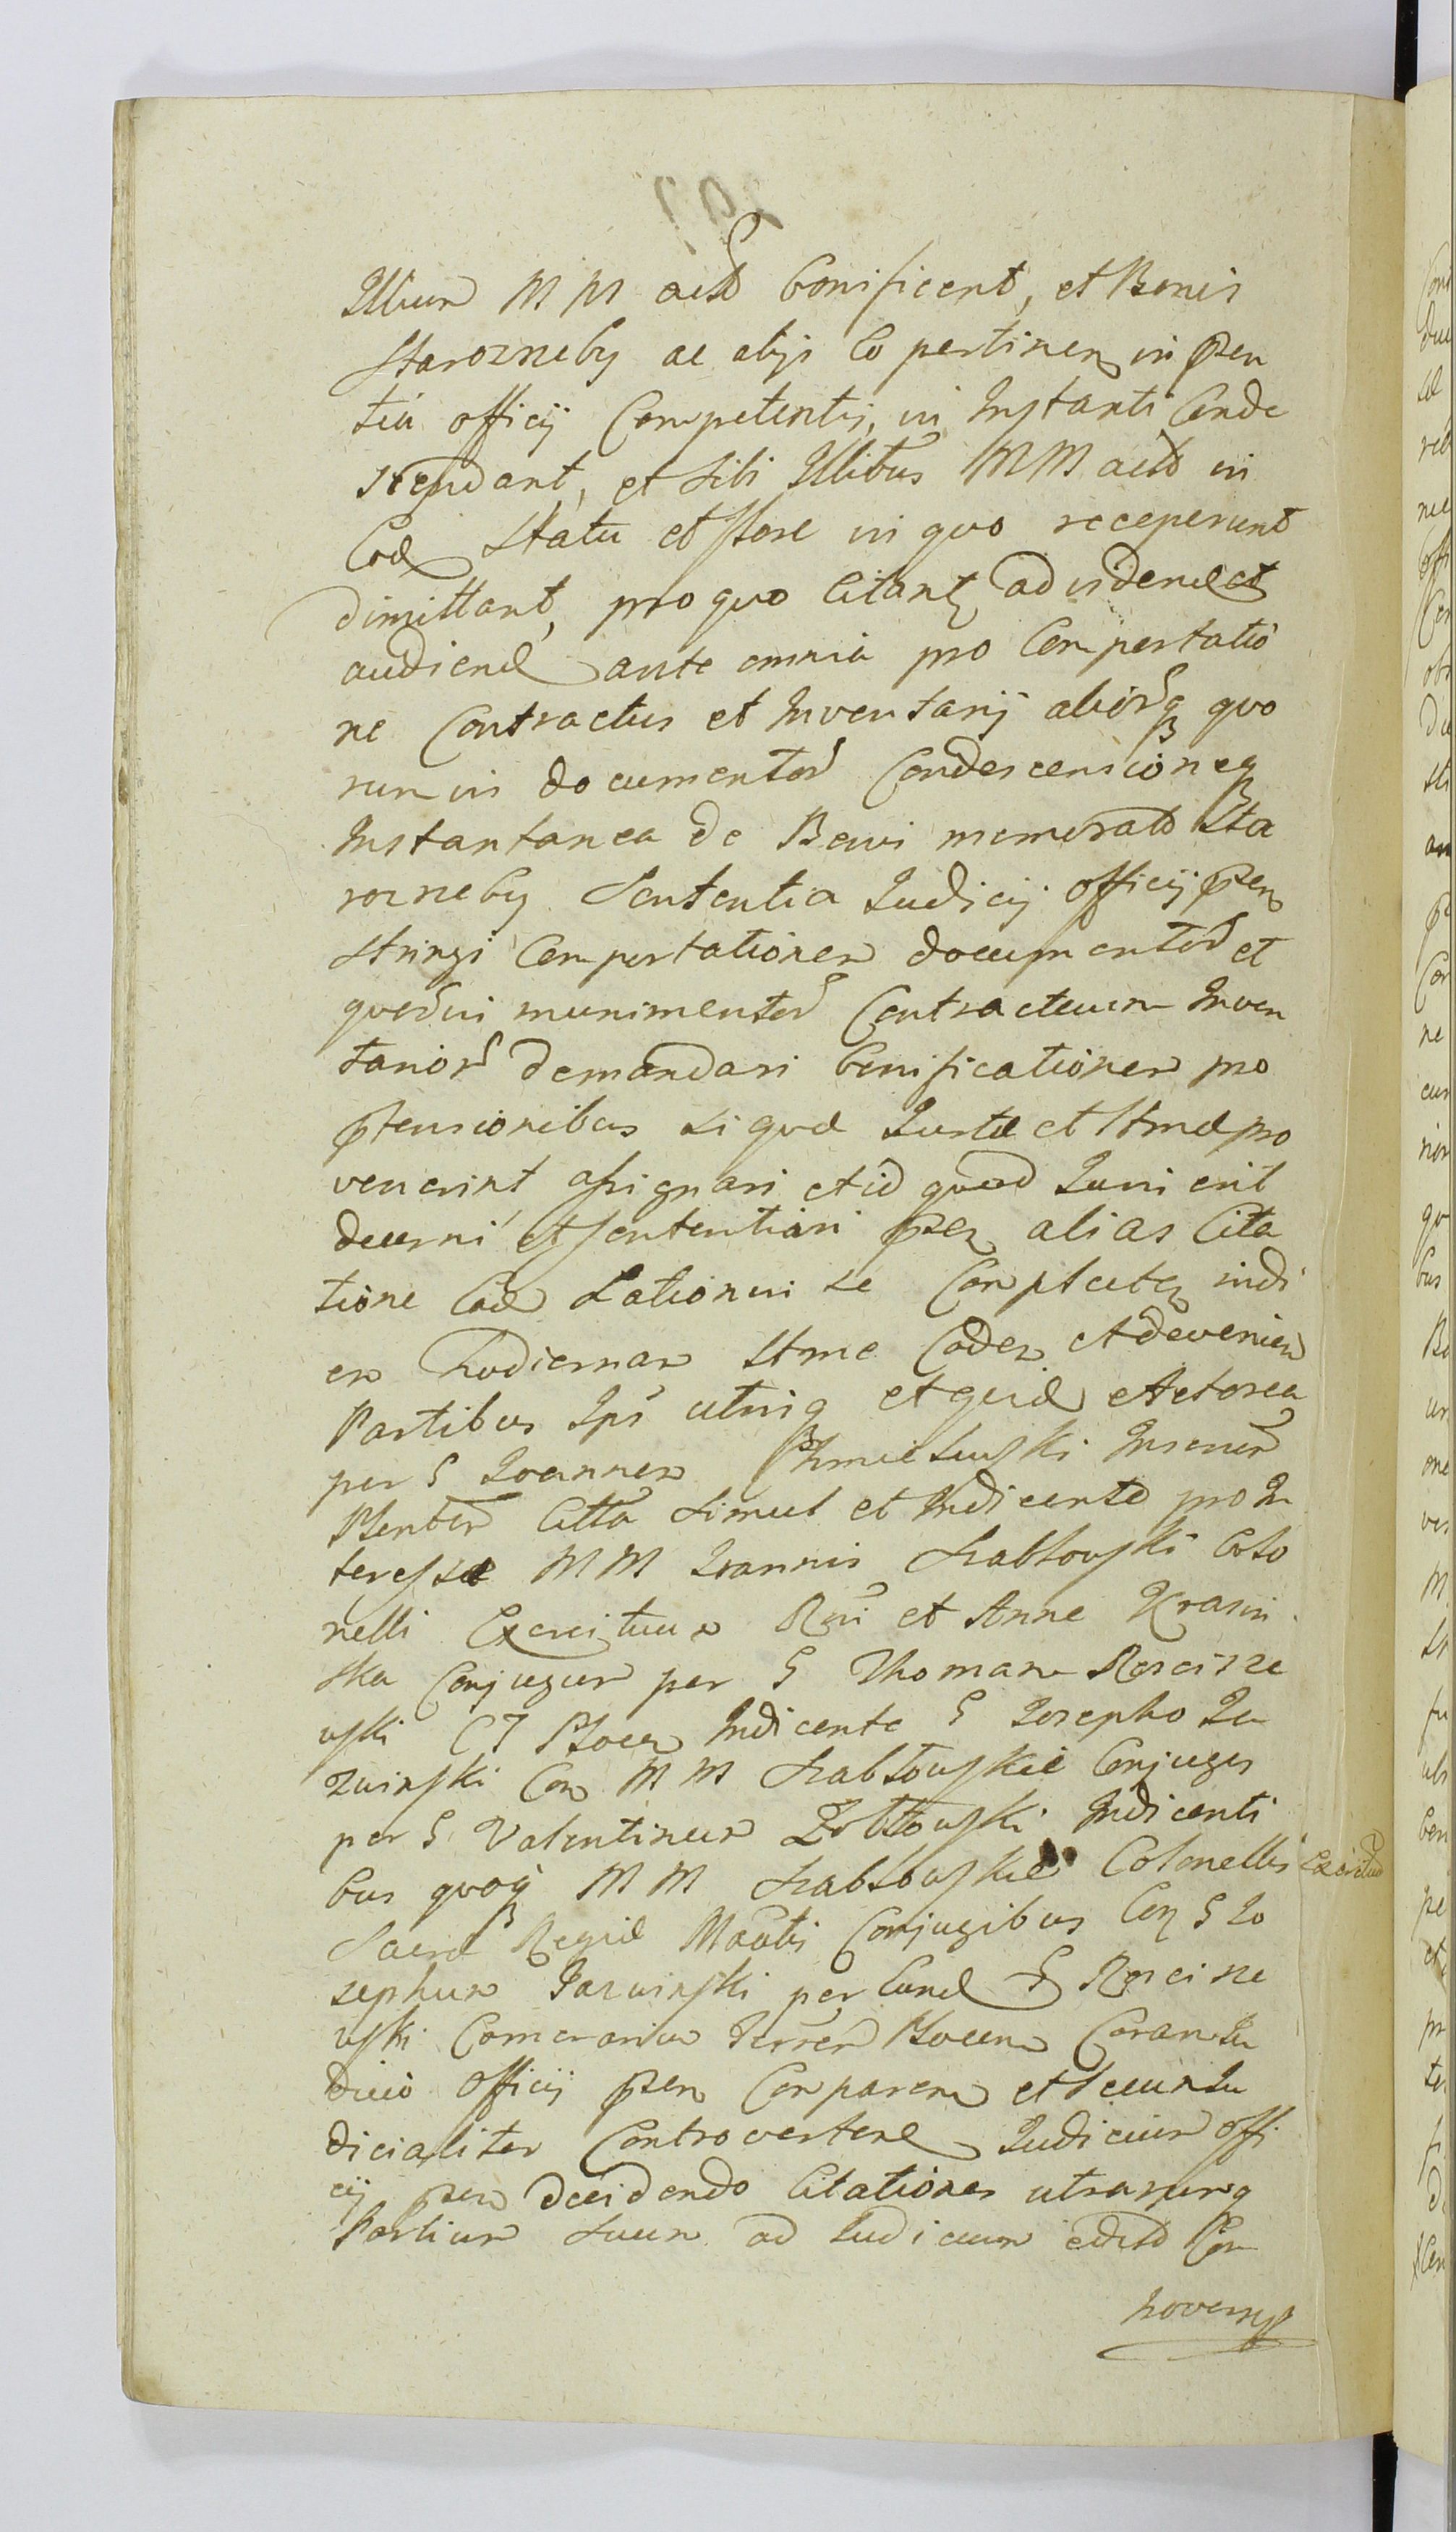 Illum M M actd bonificent, et Bonis
Starozreby ac alijs eo pertinen in pñ
tia officij Competentis, in Instanti Conde
scendant, et sibi Illibus MM actd in
Eod Statu et esse in quo receperunt
dimittant, pro quo Citant ad vidend et
audiend ante omnia pro Comportatio
ne Contractus et Inventarij aliorq quo
rumvis documentor Condescensioneq
Instantanea de Bonis memoratd Sta
rozreby Sententia Judicij officij pñ
stringi Comportationem documentor et
quorvis munimentor Contractuum Inven
tarior demandari bonificationem pro
ptensionibus si quæ Justæ et ltmæ pro
venerint assignari et id quod Juris erit
decerni et sententiari pñ alias Cita
tione Ead Lationem se Complecten indi
em hodiernam ltme Caden Advenien
Partibus Ips utrisq et quid Actorea
per G Joannem Chmielewski
Citta simul et Indicente pro In
teresse MM Joannis Szabłowski Colo
nelli Exercituum Rni et Anne Krasin
ska Conjugum per G Thomam Roscisze
wski CT Indicente G Josepho Ja
zwinski Con MM Szabłowskie Conjuges
per G Valentinum Zołtowski Indicenti
bus quoq MM Szabłowskie Colonellis Exercitus
Sacræ Regiæ Mattis Conjugibus Con G Jo
sephum Jazwinski per Eund G Roscisze
wski Cameranium Terren Coram Ju
dicio officij pñ Comparen et secum Ju
dicialiter Controverten Judicium offi
cij pñ decidendo Citationes utrarumq
Partium suum ad Judicium editd Con